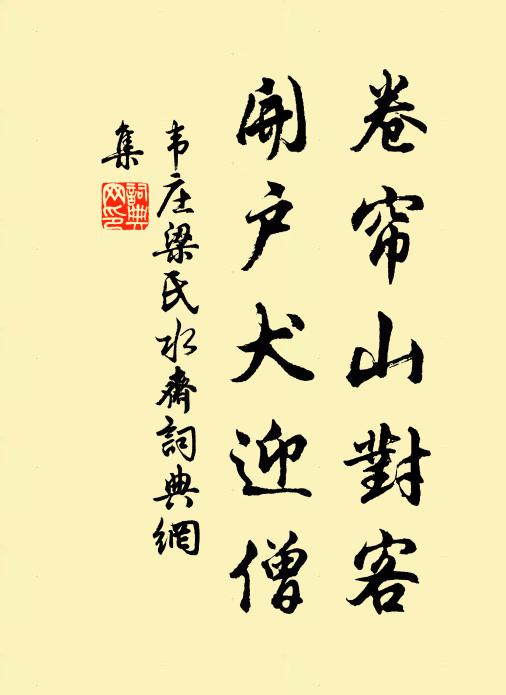 卷帘山對客
開户犬迎僧
韦庄梁氏水齋詞典網
集
詞典網印